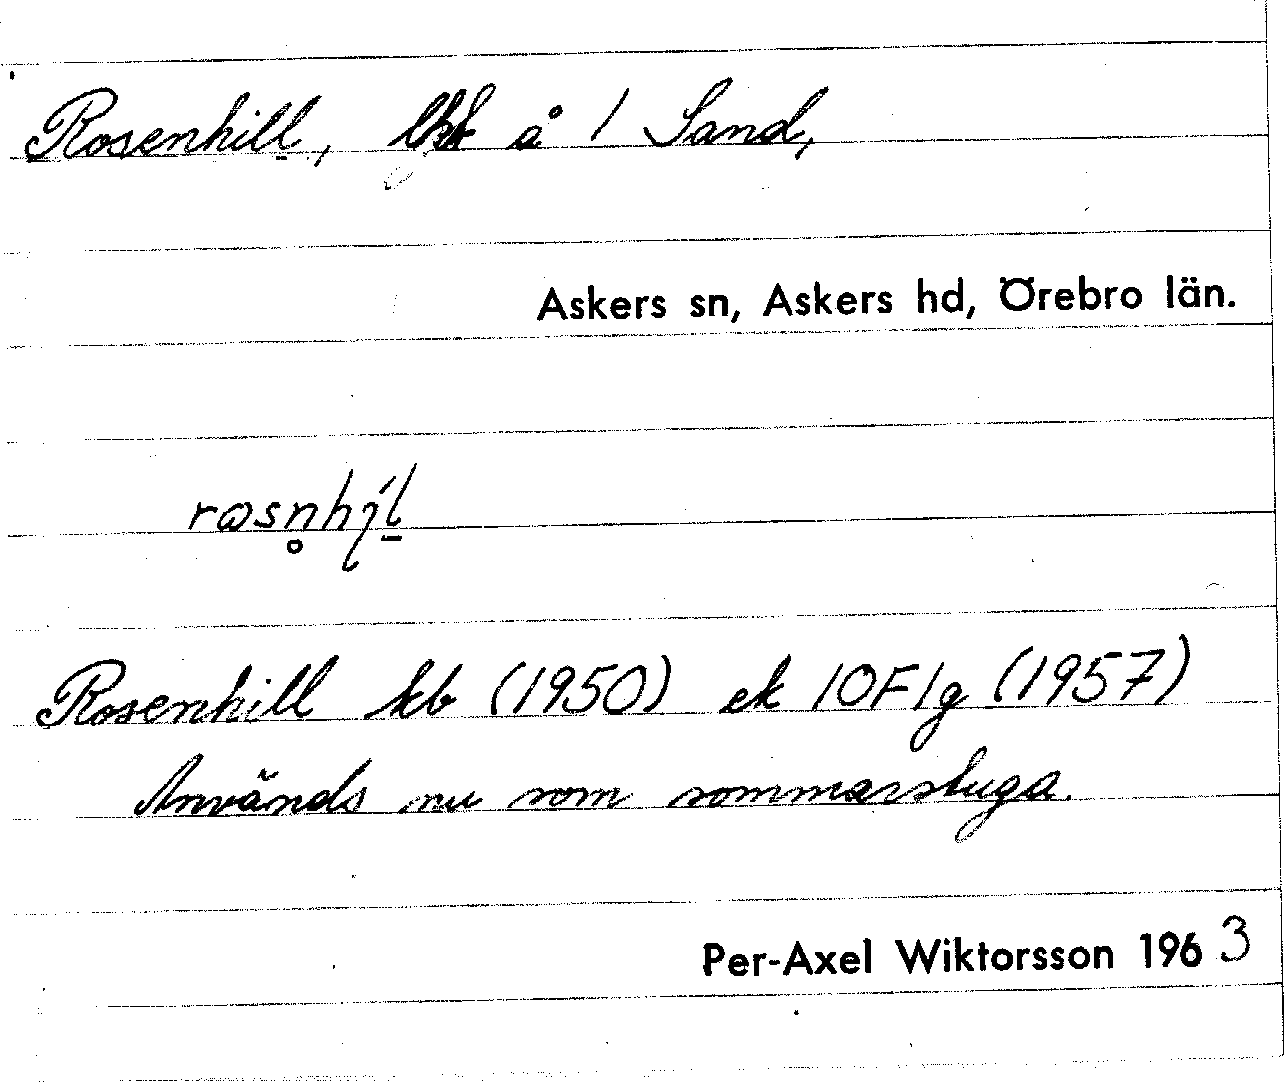 Rosenhill, lht å 1 Sand,
Askers sn, Askers hd, Örebro län.
Rosenhill kb (1950) ek 10F1g (1957)
Används nu som sommarstuga.
Per-Axel Wiktorsson 1963